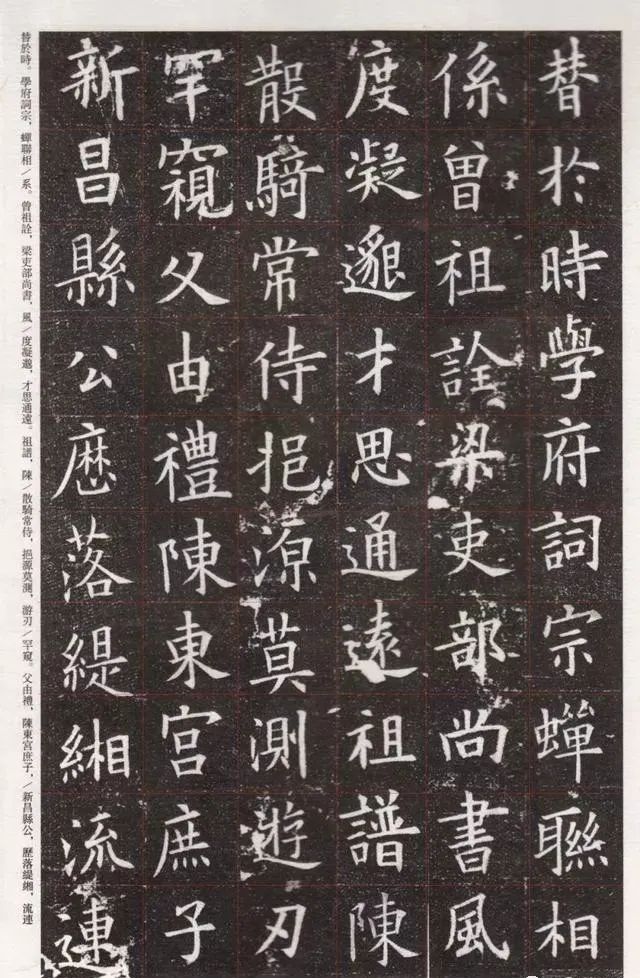 替於時學府詞宗蟬聯相
係曾祖詮梁吏部尚書風
度凝邈才思通遠祖譜陳
散騎常侍挹源莫測遊刃
罕窺父由禮陳東宮庶子
新昌縣公歷落緹緗流連
替於時。學府詞宗,蟬聯相/系。曾祖詮,梁吏部尚書,風/度凝邈,才思通遠。祖譜,陳/散騎常侍,挹源莫測,游刃/罕窺。父由禮,陳東宮庶子,/新昌縣公,歷落緹緗,流連